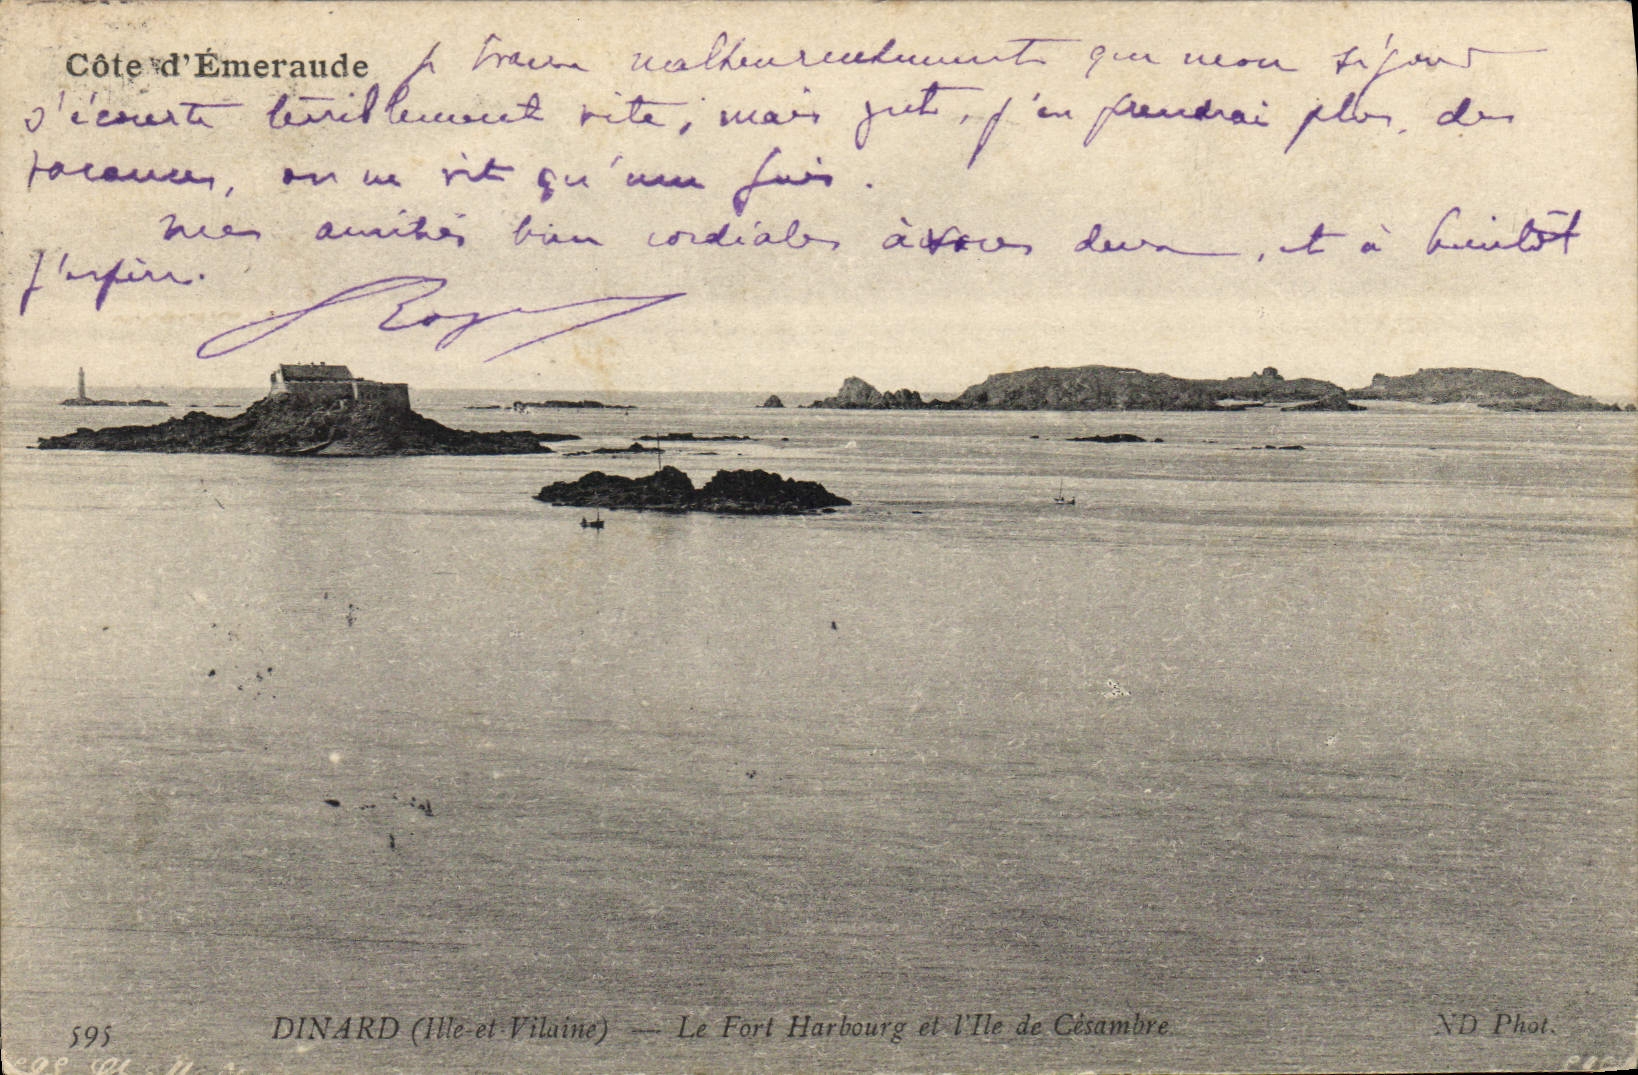 Côte d'Émeraude
Je trouve malheureusement que mon séjour
s'écourte terriblement vite, mais zut, j'en prendrai plus, des
vacances, on ne vit qu'une fois.
Mes amitiés bien cordiales à vous deux, et à bientôt
j'espère.
Roger
595 DINARD (Ille-et-Vilaine) — Le Fort Harbourg et l'Ile de Césambre ND Phot.